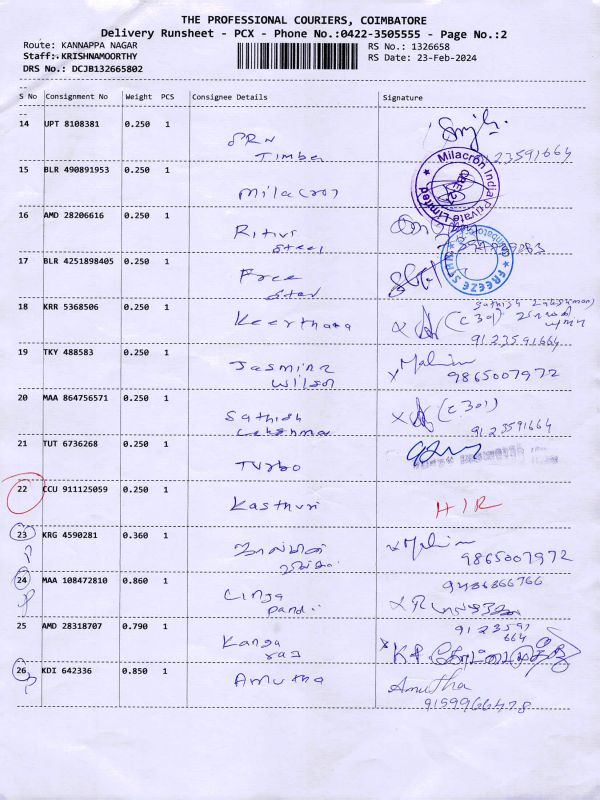 THE PROFESSIONAL COURIERS, COIMBATORE
Delivery Runsheet - PCX - Phone No.:0422-3505555 - Page No.:2
Route: KANNAPPA NAGAR
RS No.: 1326658
Staff: KRISHNAMOORTHY
RS Date: 23-Feb-2024
DRS No.: DCJB132665802
S No Consignment No Weight PCS Consignee Details Signature
14 UPT 8108381 0.250 1
SRN
Timber
23591664
15 BLR 490891953 0.250 1
Milacron
Milacron India Private Limited
16 AMD 28206616 0.250 1
Steel
17 BLR 4251898405 0.250 1
Free
FREEZE
18 KRR 5368506 0.250 1
Keerthana
(C 301)
9123591664
19 TKY 488583 0.250 1
Jasmina
Wilson
9865007972
20 MAA 864756571 0.250 1
Sathish
(C 301)
9123591664
21 TUT 6736268 0.250 1
Turbo
22 CCU 911125059 0.250 1
Kasthuri
23 KRG 4590281 0.360 1
9865007972
24 MAA 108472810 0.860 1
Linga
Pandi
9486866766
25 AMD 28318707 0.790 1
Kanga
raj
9123591
664
26 KDI 642336 0.850 1
Amutha
Amutha
9159966478